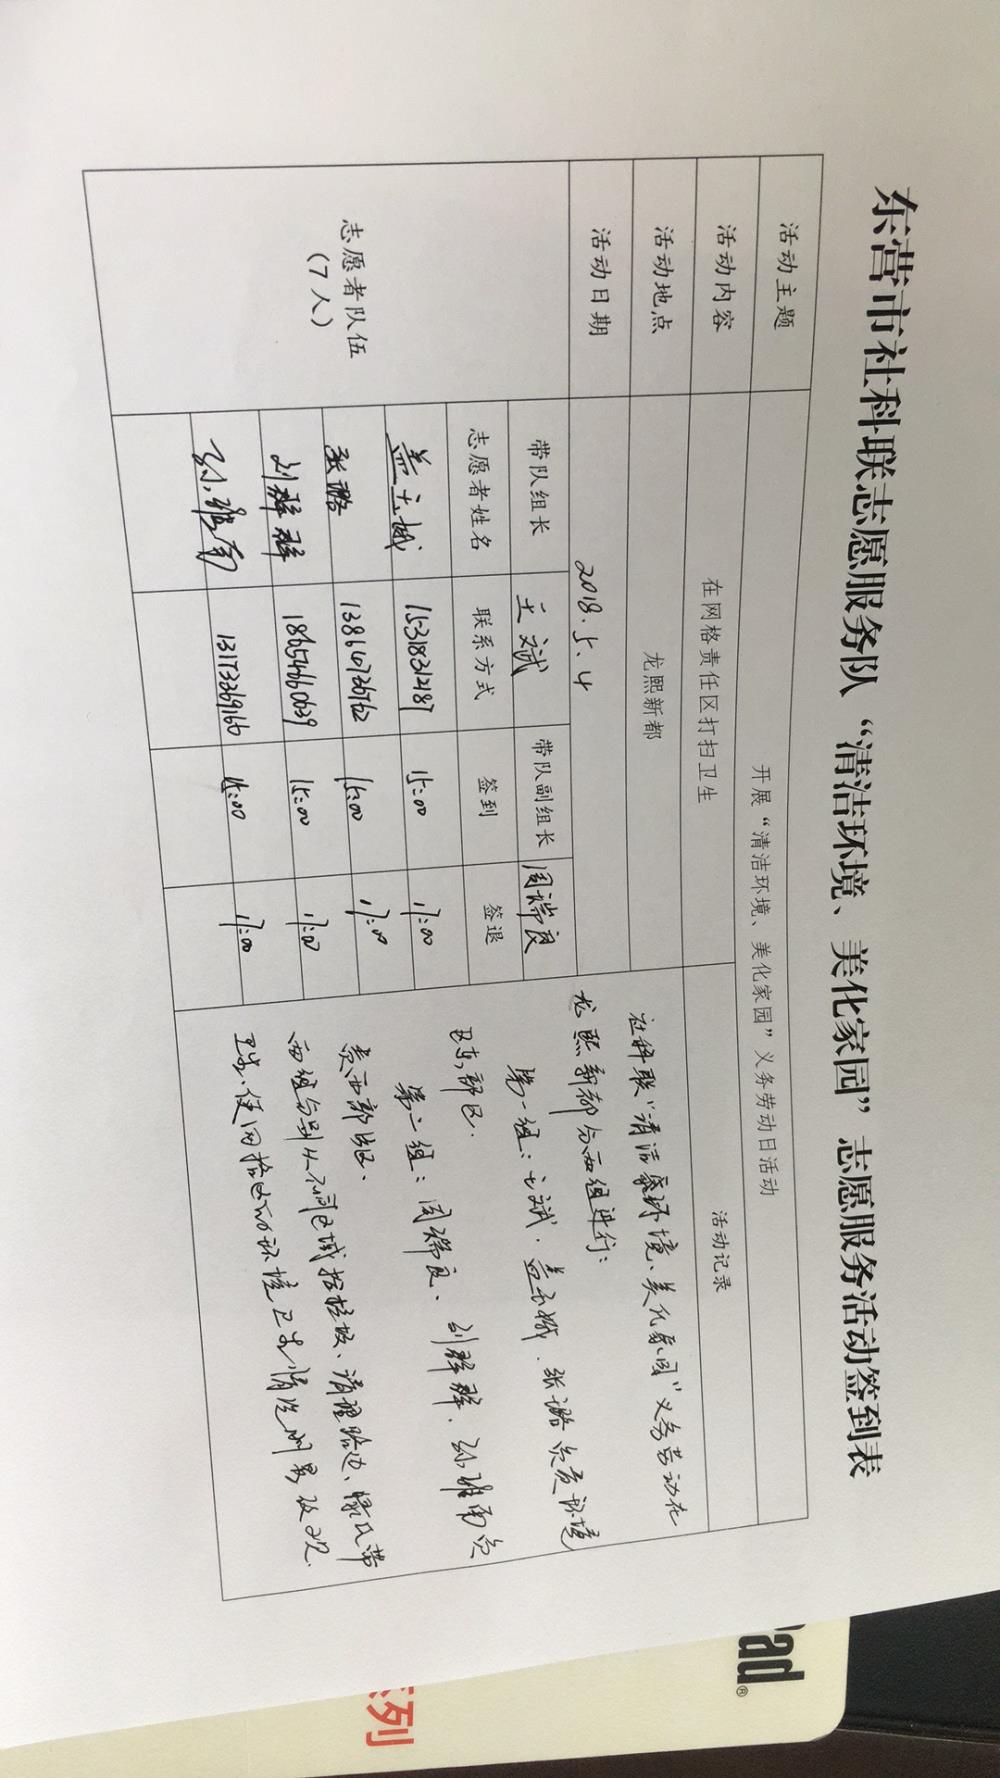 东营市社科联志愿服务队“清洁环境、美化家园”志愿服务活动签到表
活动主题 开展“清洁环境、美化家园”义务劳动日活动
活动内容 在网格责任区打扫卫生 活动记录
活动地点 龙熙新都
活动日期 2018.5.4
志愿者队伍
(7人)
带队组长 王斌 带队副组长 周瑞良
志愿者姓名 联系方式 签到 签退
15318312187 15:00 17:00
张璐 13864736762 15:00 17:00
刘群群 18654660639 15:00 17:00
孙維南 13173369166 15:00 17:00
社科联“清洁环境、美化家园”义务劳动在
龙熙新都分两组进行:
第一组:王斌、张璐负责环境
区东部区.
第二组:周瑞良、刘群群、孙維南负
责西部区.
两组分别从不同区域捡垃圾、清理路边、绿化带
卫生,使网格区环境卫生情况明显改观.
Pad®
系列